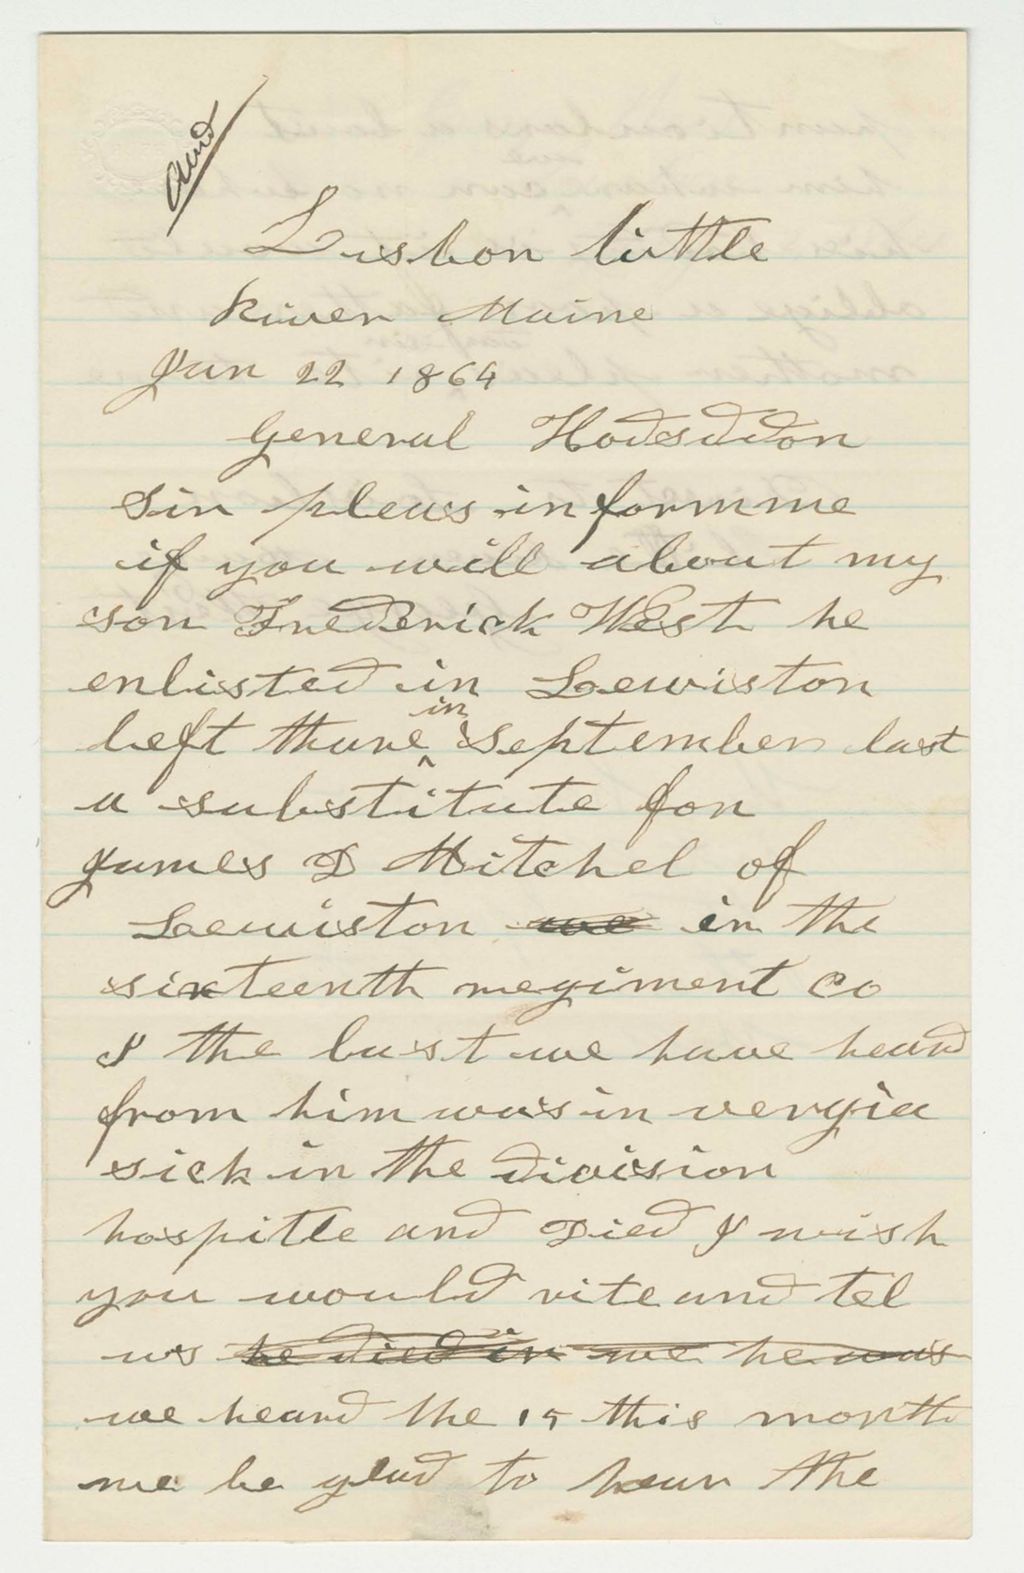 Ansd
Lisbon little
River Maine
Jan 22 1864
General Hodsddon
Sir pleas inform me
if you will about my
son Frederick West he
enlisted in Lewiston
left thare in September last
a substitute for
James D Mitchel of
Lewiston we in the
sixteenth regiment Co
I the last we have heard
from him was in vergia
sick in the division
hospitle and Died I wish
you would rite and tel
us he died in we he was
we heard the 15 this month
we be glad to hear the